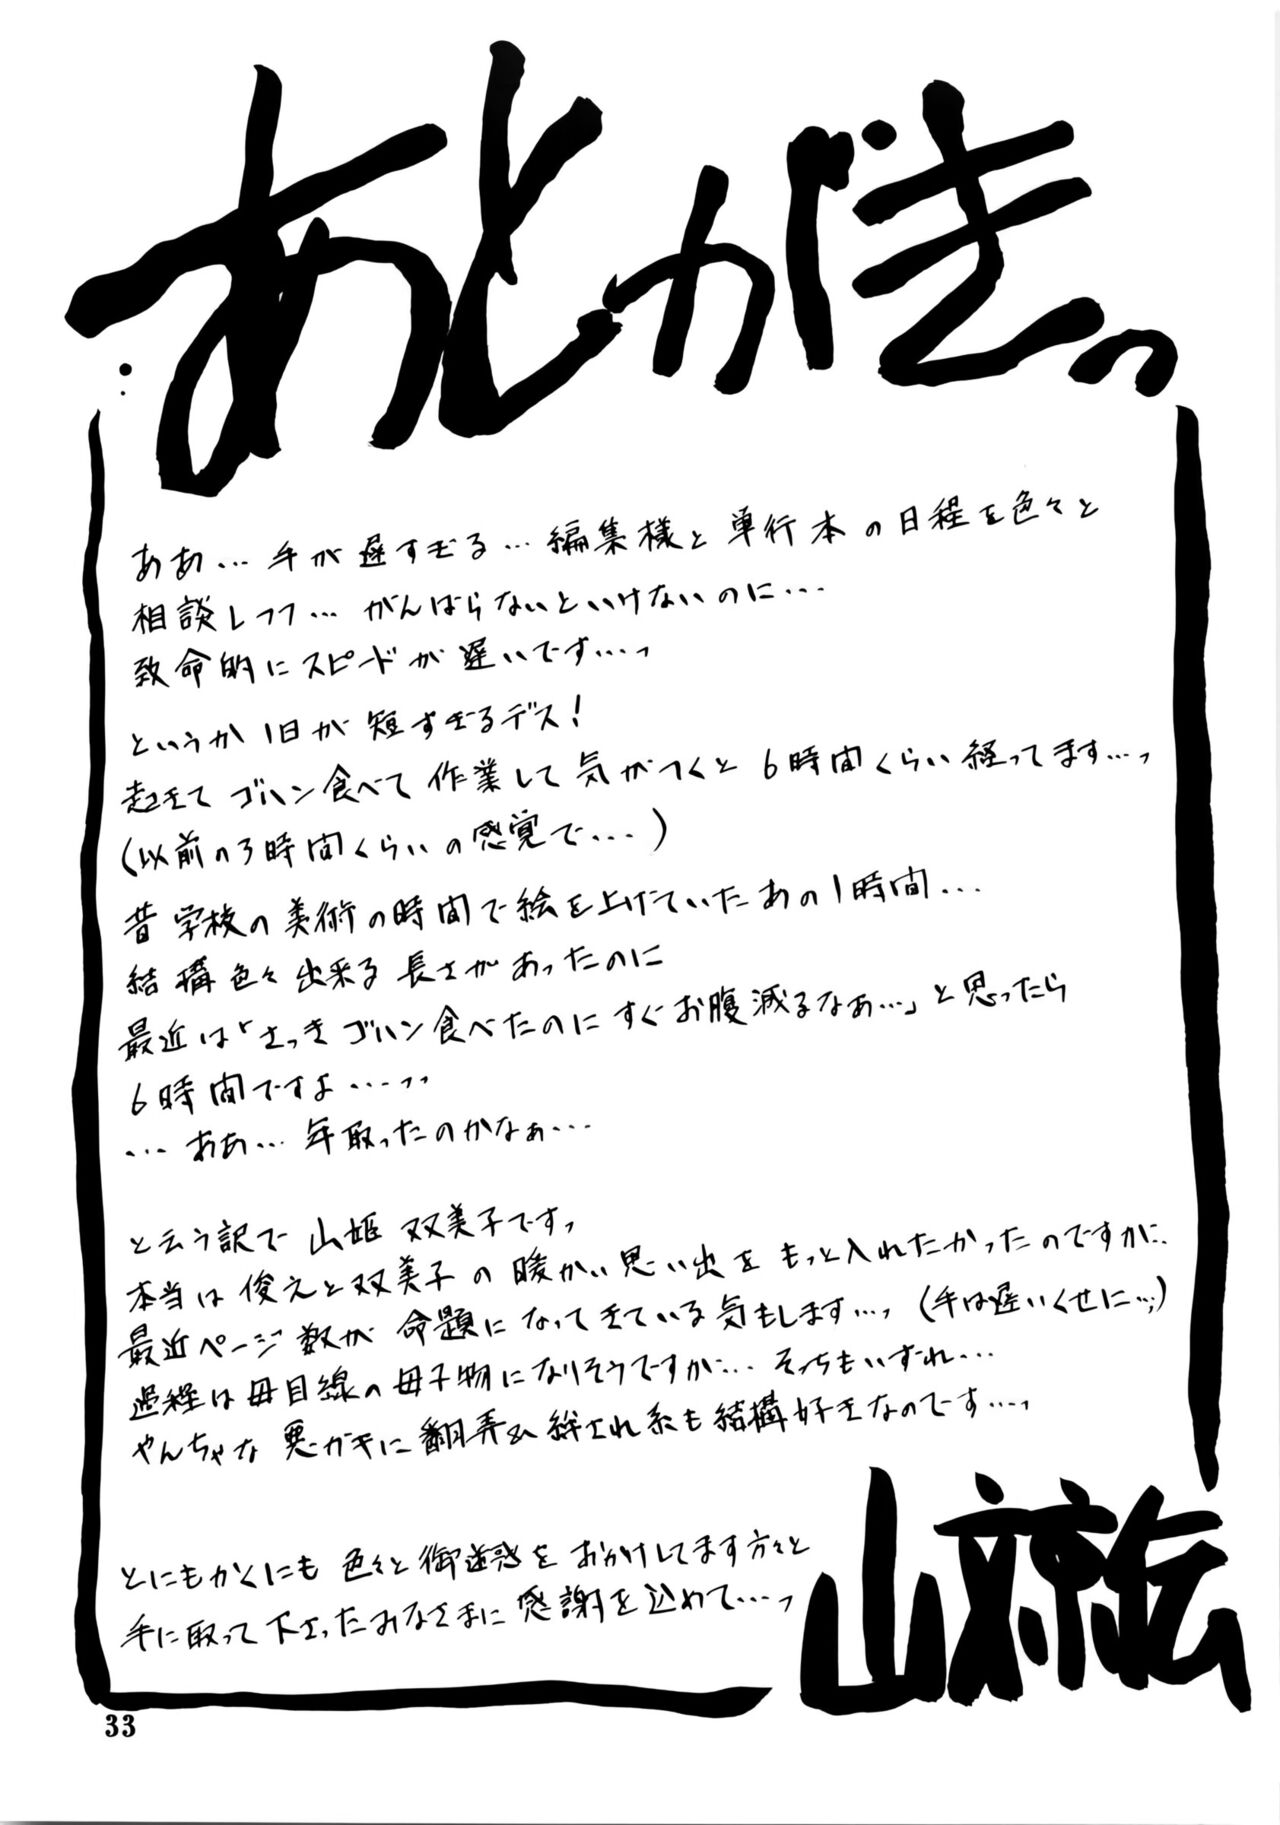 あとがきっ
ああ…手が遅すぎる…編集様と単行本の日程を色々と
相談しつつ…がんばらないといけないのに…
致命的にスピードが遅いです…っ
というか1日が短すぎるデス!
起きてゴハン食べて作業して気がつくと6時間くらい経ってます…っ
(以前の3時間くらいの感覚で…)
昔学校の美術の時間で絵を上げていたあの1時間…
結構色々出来る長さがあったのに
最近は「さっきゴハン食べたのにすぐお腹減るなぁ…」と思ったら
6時間ですよ…っっ
…ああ…年取ったのかなぁ…
と云う訳で山姫 双美子ですっ
本当は俊えと双美子の暖かい思い出をもっと入れたかったのですが、
最近ページ数が命題になってきている気もします…っ(手は遅いくせに…;)
過程は母目線の母子物になりそうですが…そっちもいずれ…
やんちゃな悪ガキに翻弄&絆され系も結構好きなのです…っ
とにもかくにも色々と御迷惑をおかけしてます方々と
手に取って下さったみなさまに感謝を込めて…っ
山文京伝
33